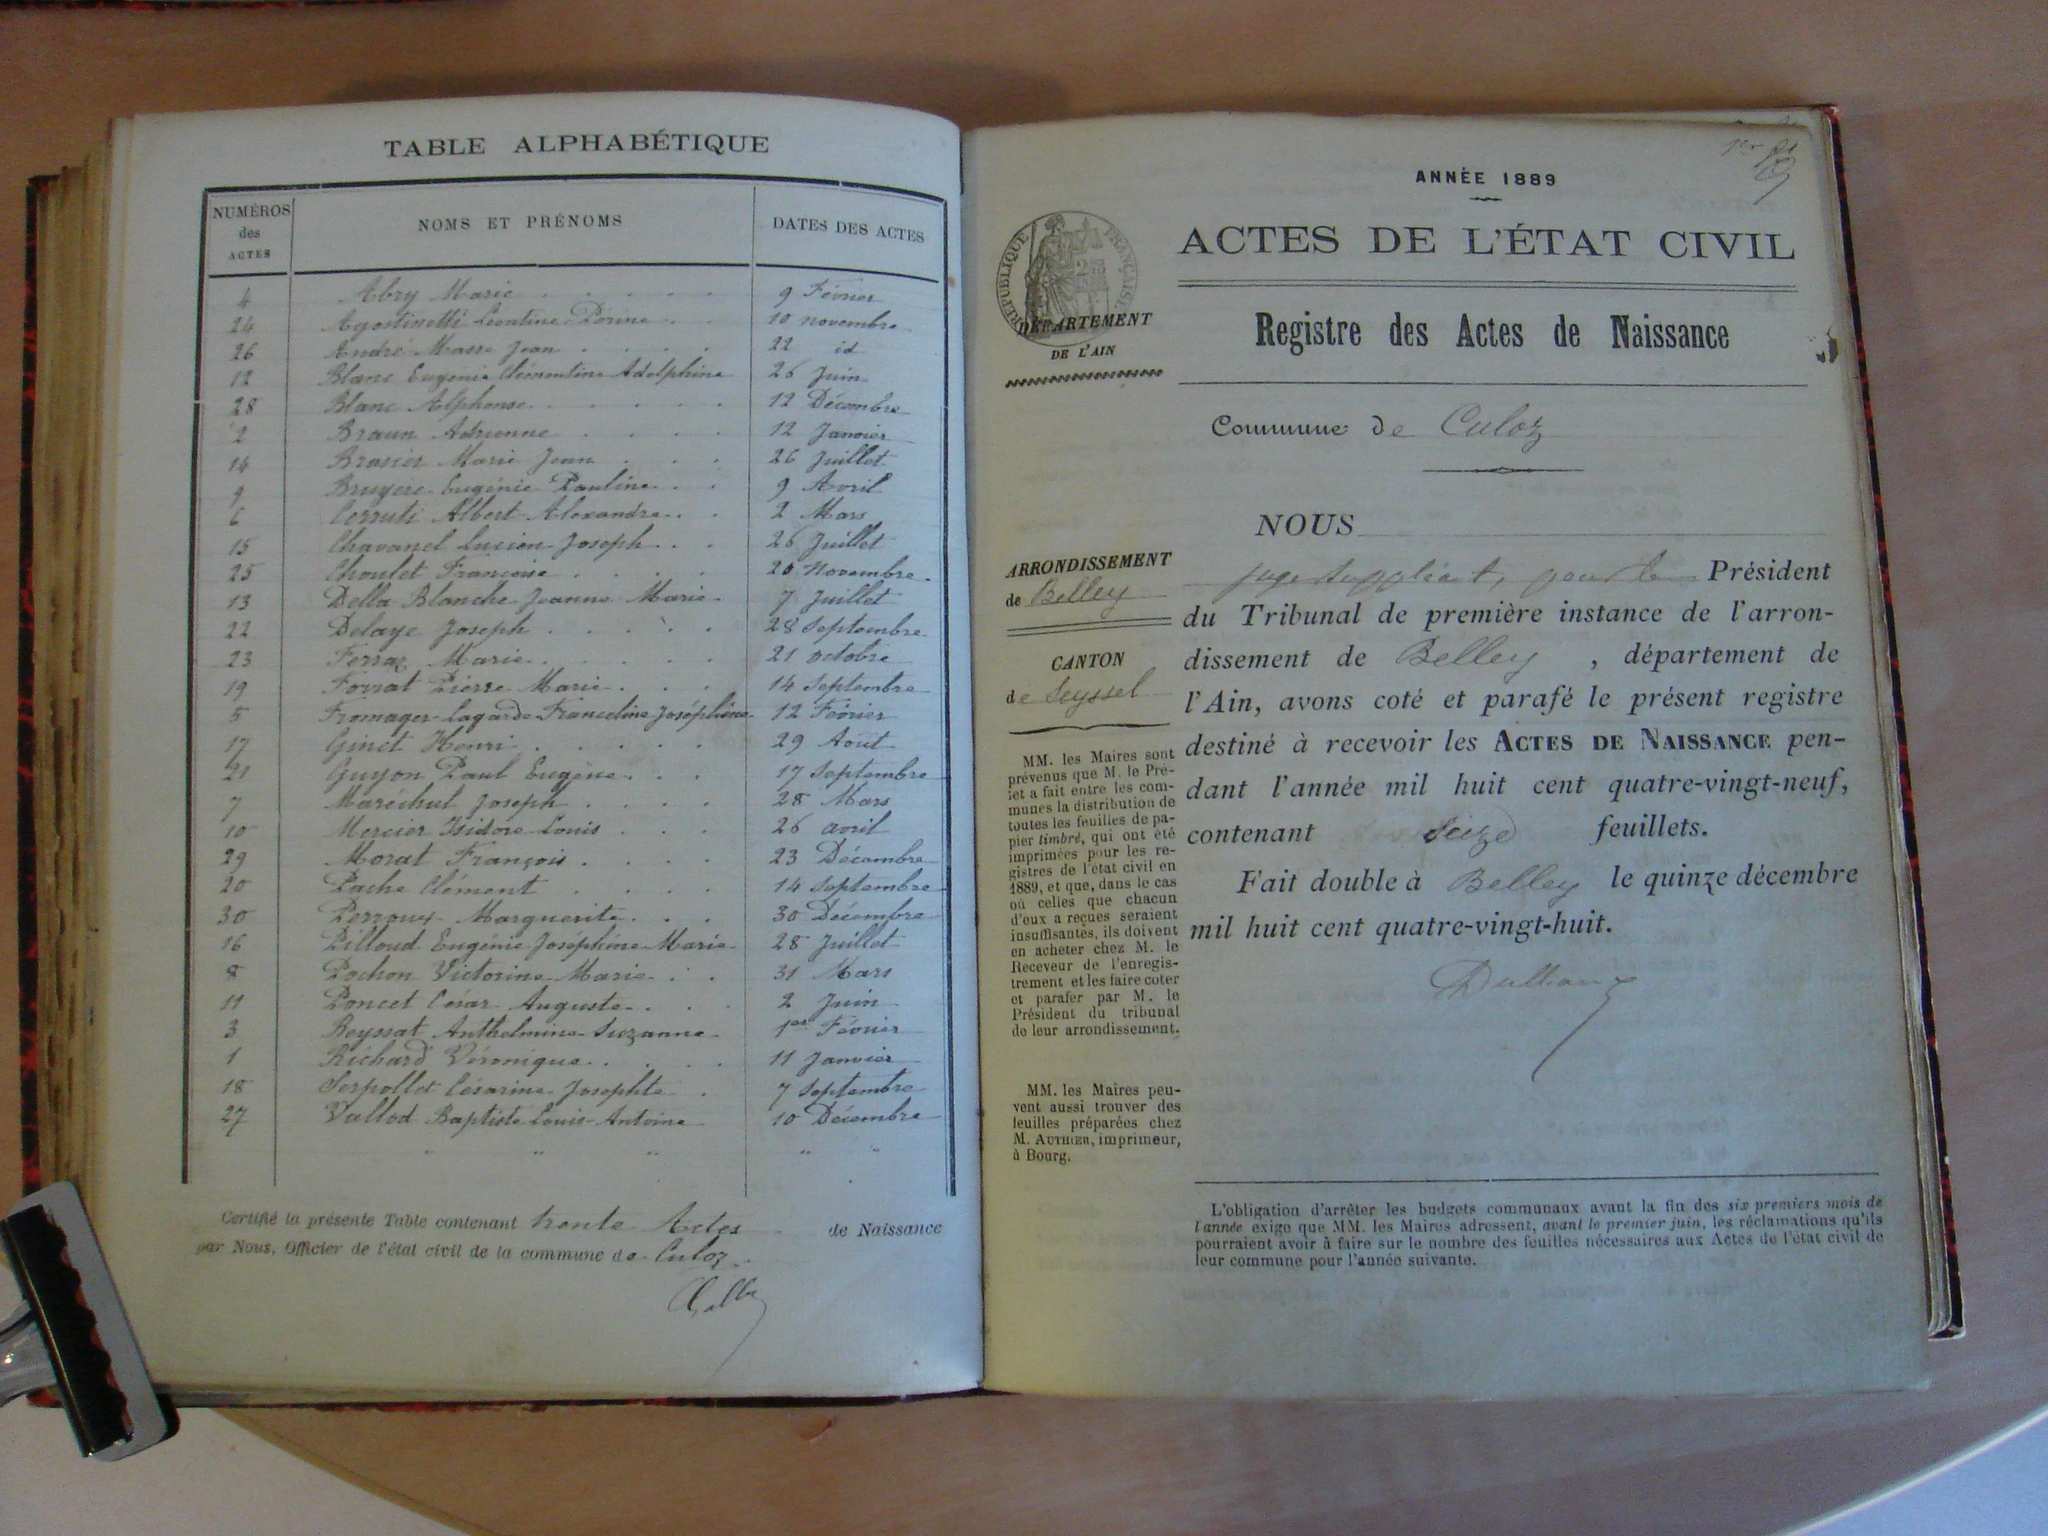 TABLE ALPHABÉTIQUE
NUMÉROS des ACTES NOMS ET PRÉNOMS DATES DES ACTES
4 Abry Marie 9 Février
24 Agostinetti Léontine Périne 10 novembre
26 André Masse Jean 22 id
12 Blanc Eugénie Clémentine Adolphine 26 Juin
28 Blanc Alphonse 12 Décembre
2 Braun Adrienne 12 Janvier
14 Brasier Marie Jean 26 Juillet
9 Bruyère Eugénie Pauline 9 Avril
6 Cerruti Albert Alexandre 2 Mars
15 Chavanel Lucien Joseph 26 Juillet
25 Choulet Françoise 20 Novembre
13 Della Blanche Jeanne Marie 7 Juillet
22 Delaye Joseph 28 Septembre
23 Ferraz Marie 21 octobre
19 Forrat Pierre Marie 14 Septembre
5 Fromager Lagarde Franceline Joséphine 12 Février
17 Ginet Henri 29 Août
21 Guyon Paul Eugène 17 Septembre
7 Maréchal Joseph 28 Mars
10 Mercier Isidore Louis 26 avril
29 Morat François 23 Décembre
20 Pache Clément 14 Septembre
30 Perrouy Marguerite 30 Décembre
16 Pilloud Eugénie Joséphine Marie 28 Juillet
8 Pochon Victorine Marie 31 Mars
11 Poncet César Auguste 2 Juin
3 Reyssat Anthelmine Suzanne 1er Février
1 Richard Véronique 11 Janvier
18 Serpollet Césarine Josephte 7 Septembre
27 Vallod Baptiste Louis Antoine 10 Décembre
Certifié la présente Table contenant trente Actes de Naissance
par Nous, Officier de l'état civil de la commune de Culoz
ANNÉE 1889
ACTES DE L'ÉTAT CIVIL
RÉPUBLIQUE FRANÇAISE
DÉPARTEMENT
DE L'AIN
Registre des Actes de Naissance
Commune de Culoz
NOUS
juge suppléant, pour le Président
du Tribunal de première instance de l'arron-
dissement de Belley, département de
l'Ain, avons coté et parafé le présent registre
destiné à recevoir les ACTES DE NAISSANCE pen-
dant l'année mil huit cent quatre-vingt-neuf,
contenant Seize feuillets.
Fait double à Belley le quinze décembre
mil huit cent quatre-vingt-huit.
ARRONDISSEMENT
de Belley
CANTON
de Seyssel
MM. les Maires sont
prévenus que M. le Pré-
fet a fait entre les com-
munes la distribution de
toutes les feuilles de pa-
pier timbré, qui ont été
imprimées pour les re-
gistres de l'état civil en
1889, et que, dans le cas
où celles que chacun
d'eux a reçues seraient
insuffisantes, ils doivent
en acheter chez M. le
Receveur de l'enregis-
trement et les faire coter
et parafer par M. le
Président du tribunal
de leur arrondissement.
MM. les Maires peu-
vent aussi trouver des
feuilles préparées chez
M. AUTHIER, imprimeur,
à Bourg.
L'obligation d'arrêter les budgets communaux avant la fin des six premiers mois de
l'année exige que MM. les Maires adressent, avant le premier juin, les réclamations qu'ils
pourraient avoir à faire sur le nombre des feuilles nécessaires aux Actes de l'état civil de
leur commune pour l'année suivante.